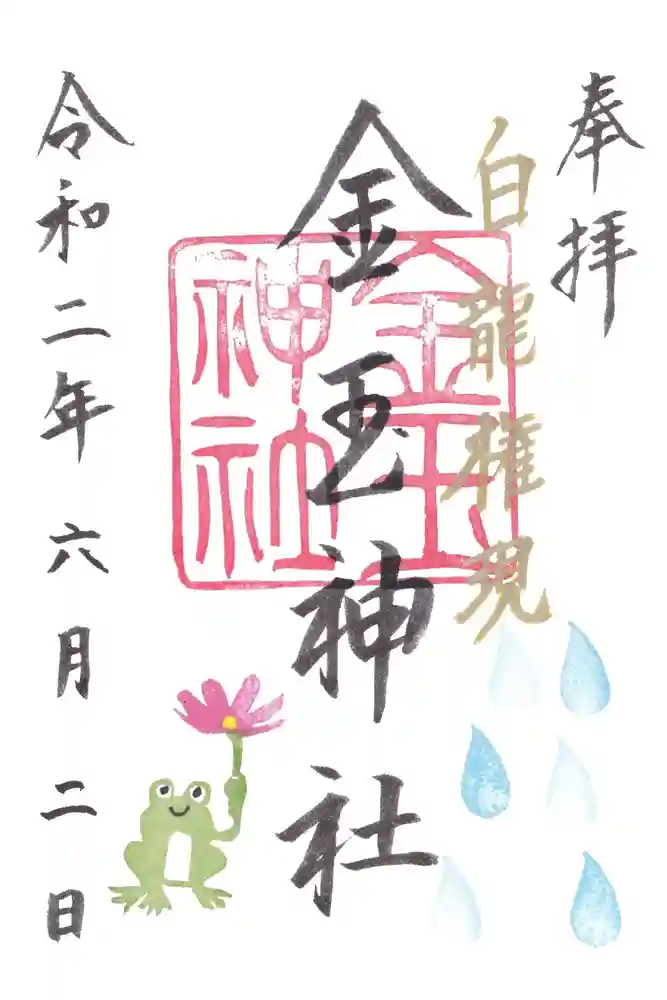 奉拝
白龍権現
金玉神社
金玉神社
令和二年六月二日